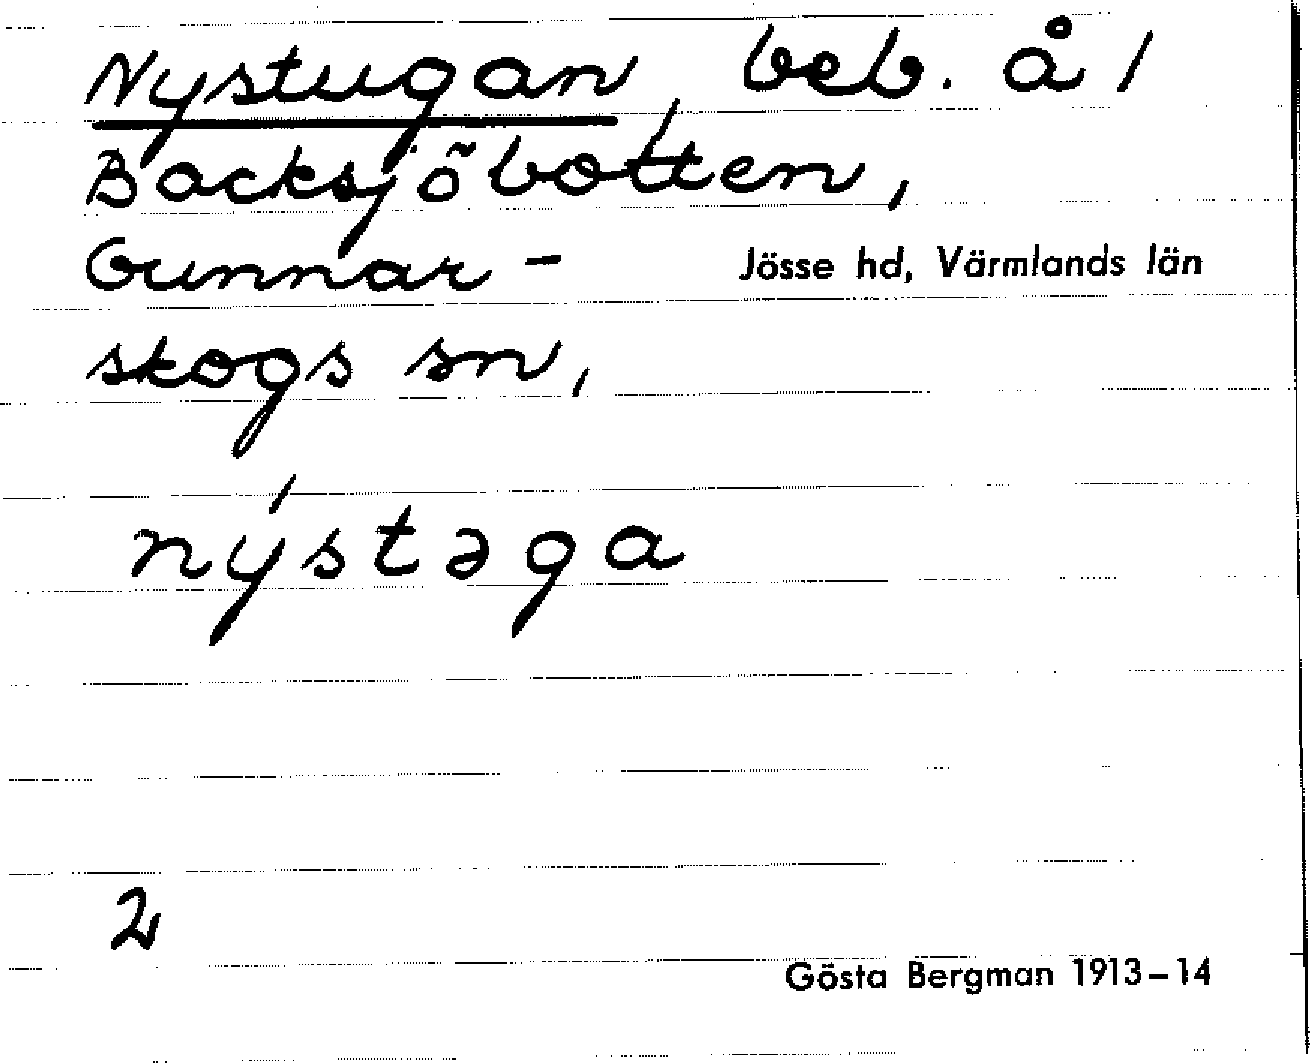 Nystugan, beb. å /
Backsjöbotten,
Gunnar-
Jösse hd, Värmlands län
skogs sn,
nýstəga
2
Gösta Bergman 1913–14